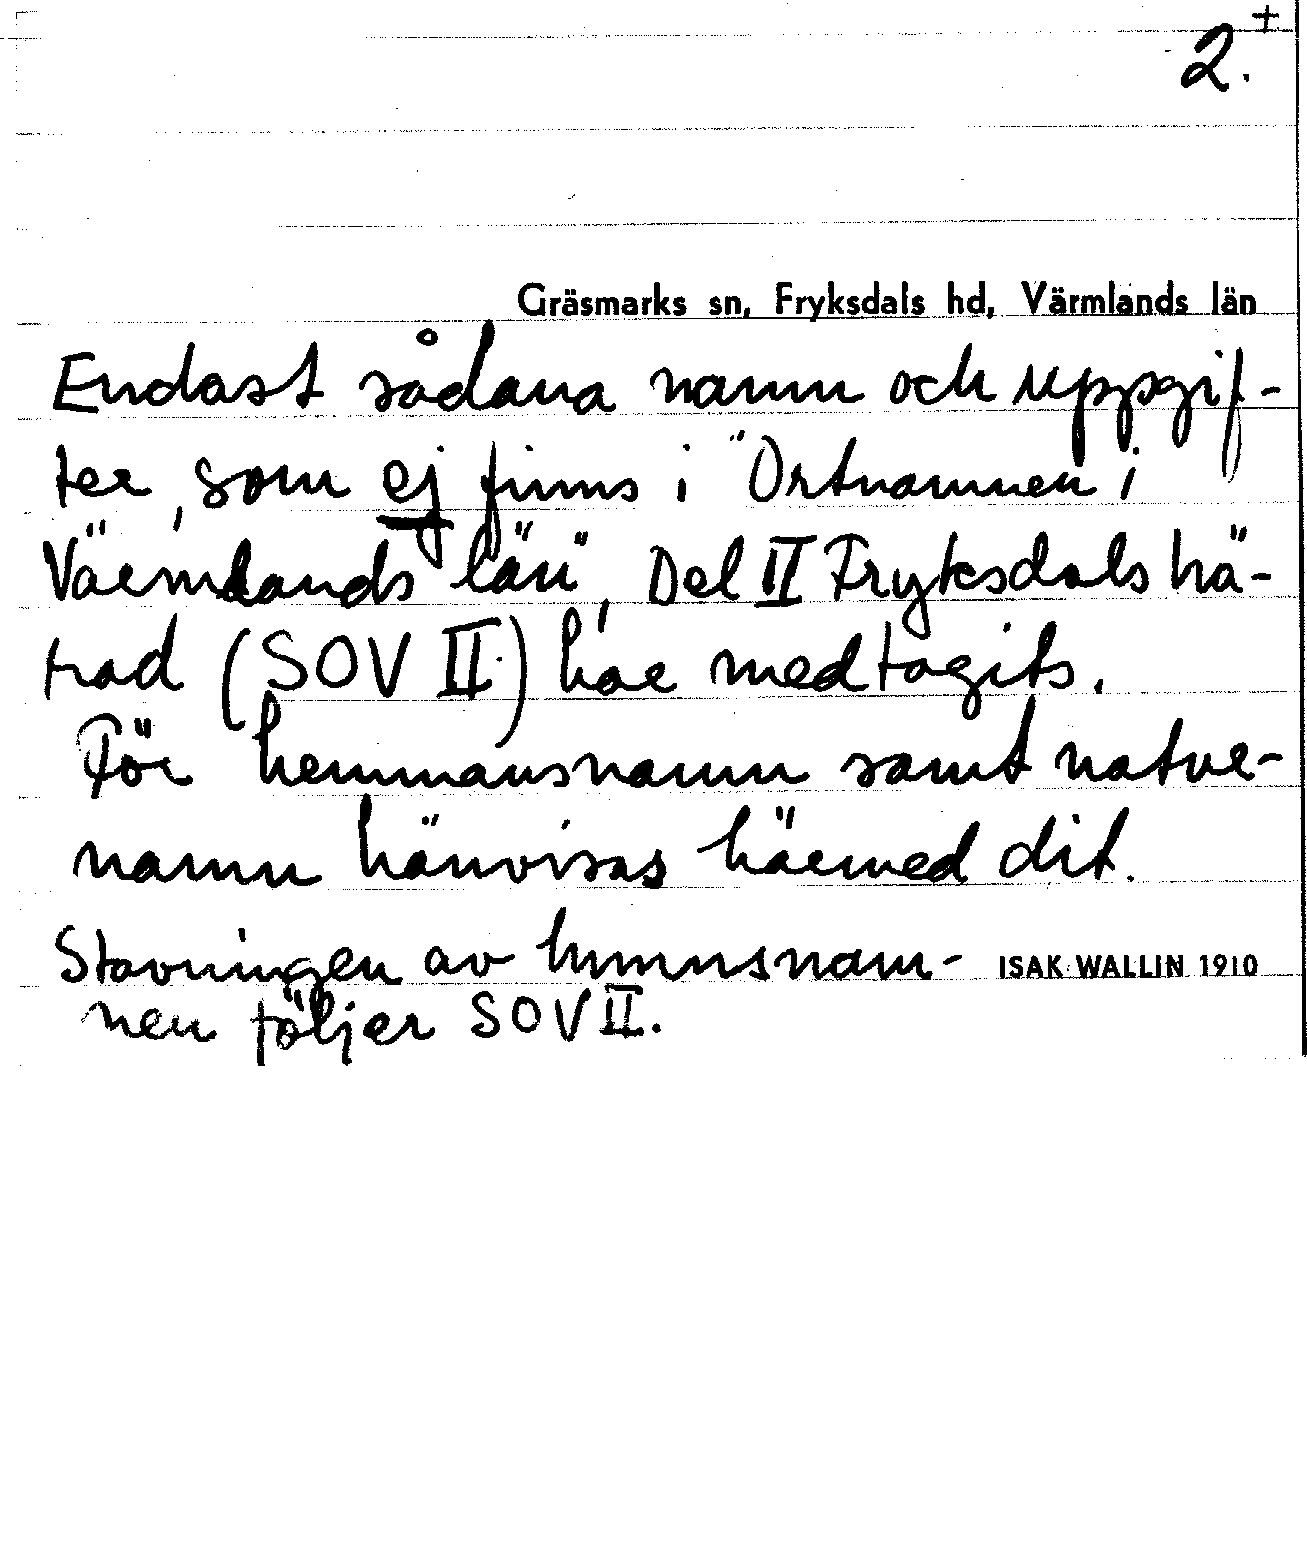 +
2.
Gräsmarks sn, Fryksdals hd, Värmlands län
Endast sådana namn och uppgif-
ter, som ej finns i "Ortnamnen i
Värmlands län", Del II Fryksdals hä-
rad (SOV II) har medtagits.
För hemmansnamn samt natur-
namn hänvisas härmed dit.
Stavningen av hmnsnam- ISAK WALLIN 1910
nen följer SOV II.